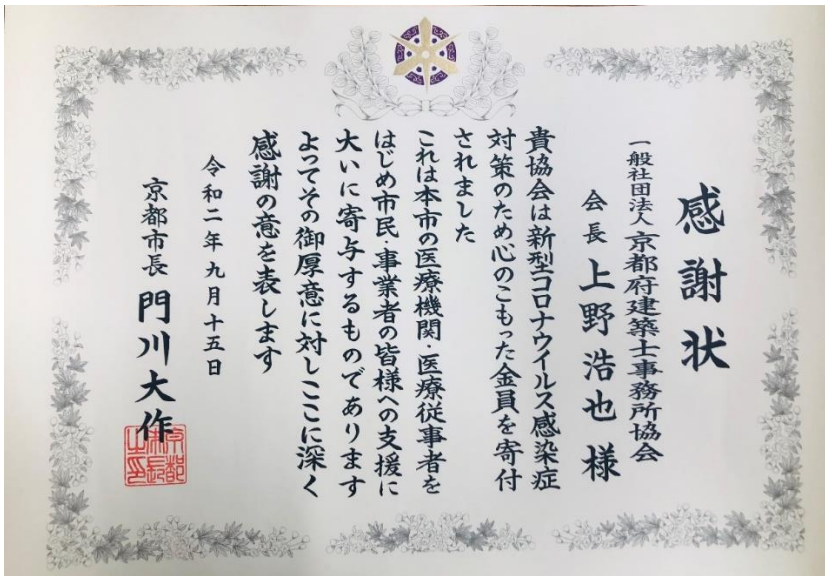 感謝状
一般社団法人 京都府建築士事務所協会
会長 上野浩也様
貴協会は新型コロナウイルス感染症
対策のため心のこもった金員を寄付
されました
これは本市の医療機関・医療従事者を
はじめ市民・事業者の皆様への支援に
大いに寄与するものであります
よってその御厚意に対しここに深く
感謝の意を表します
令和二年九月十五日
京都市長 門川大作
京都
市長
之印